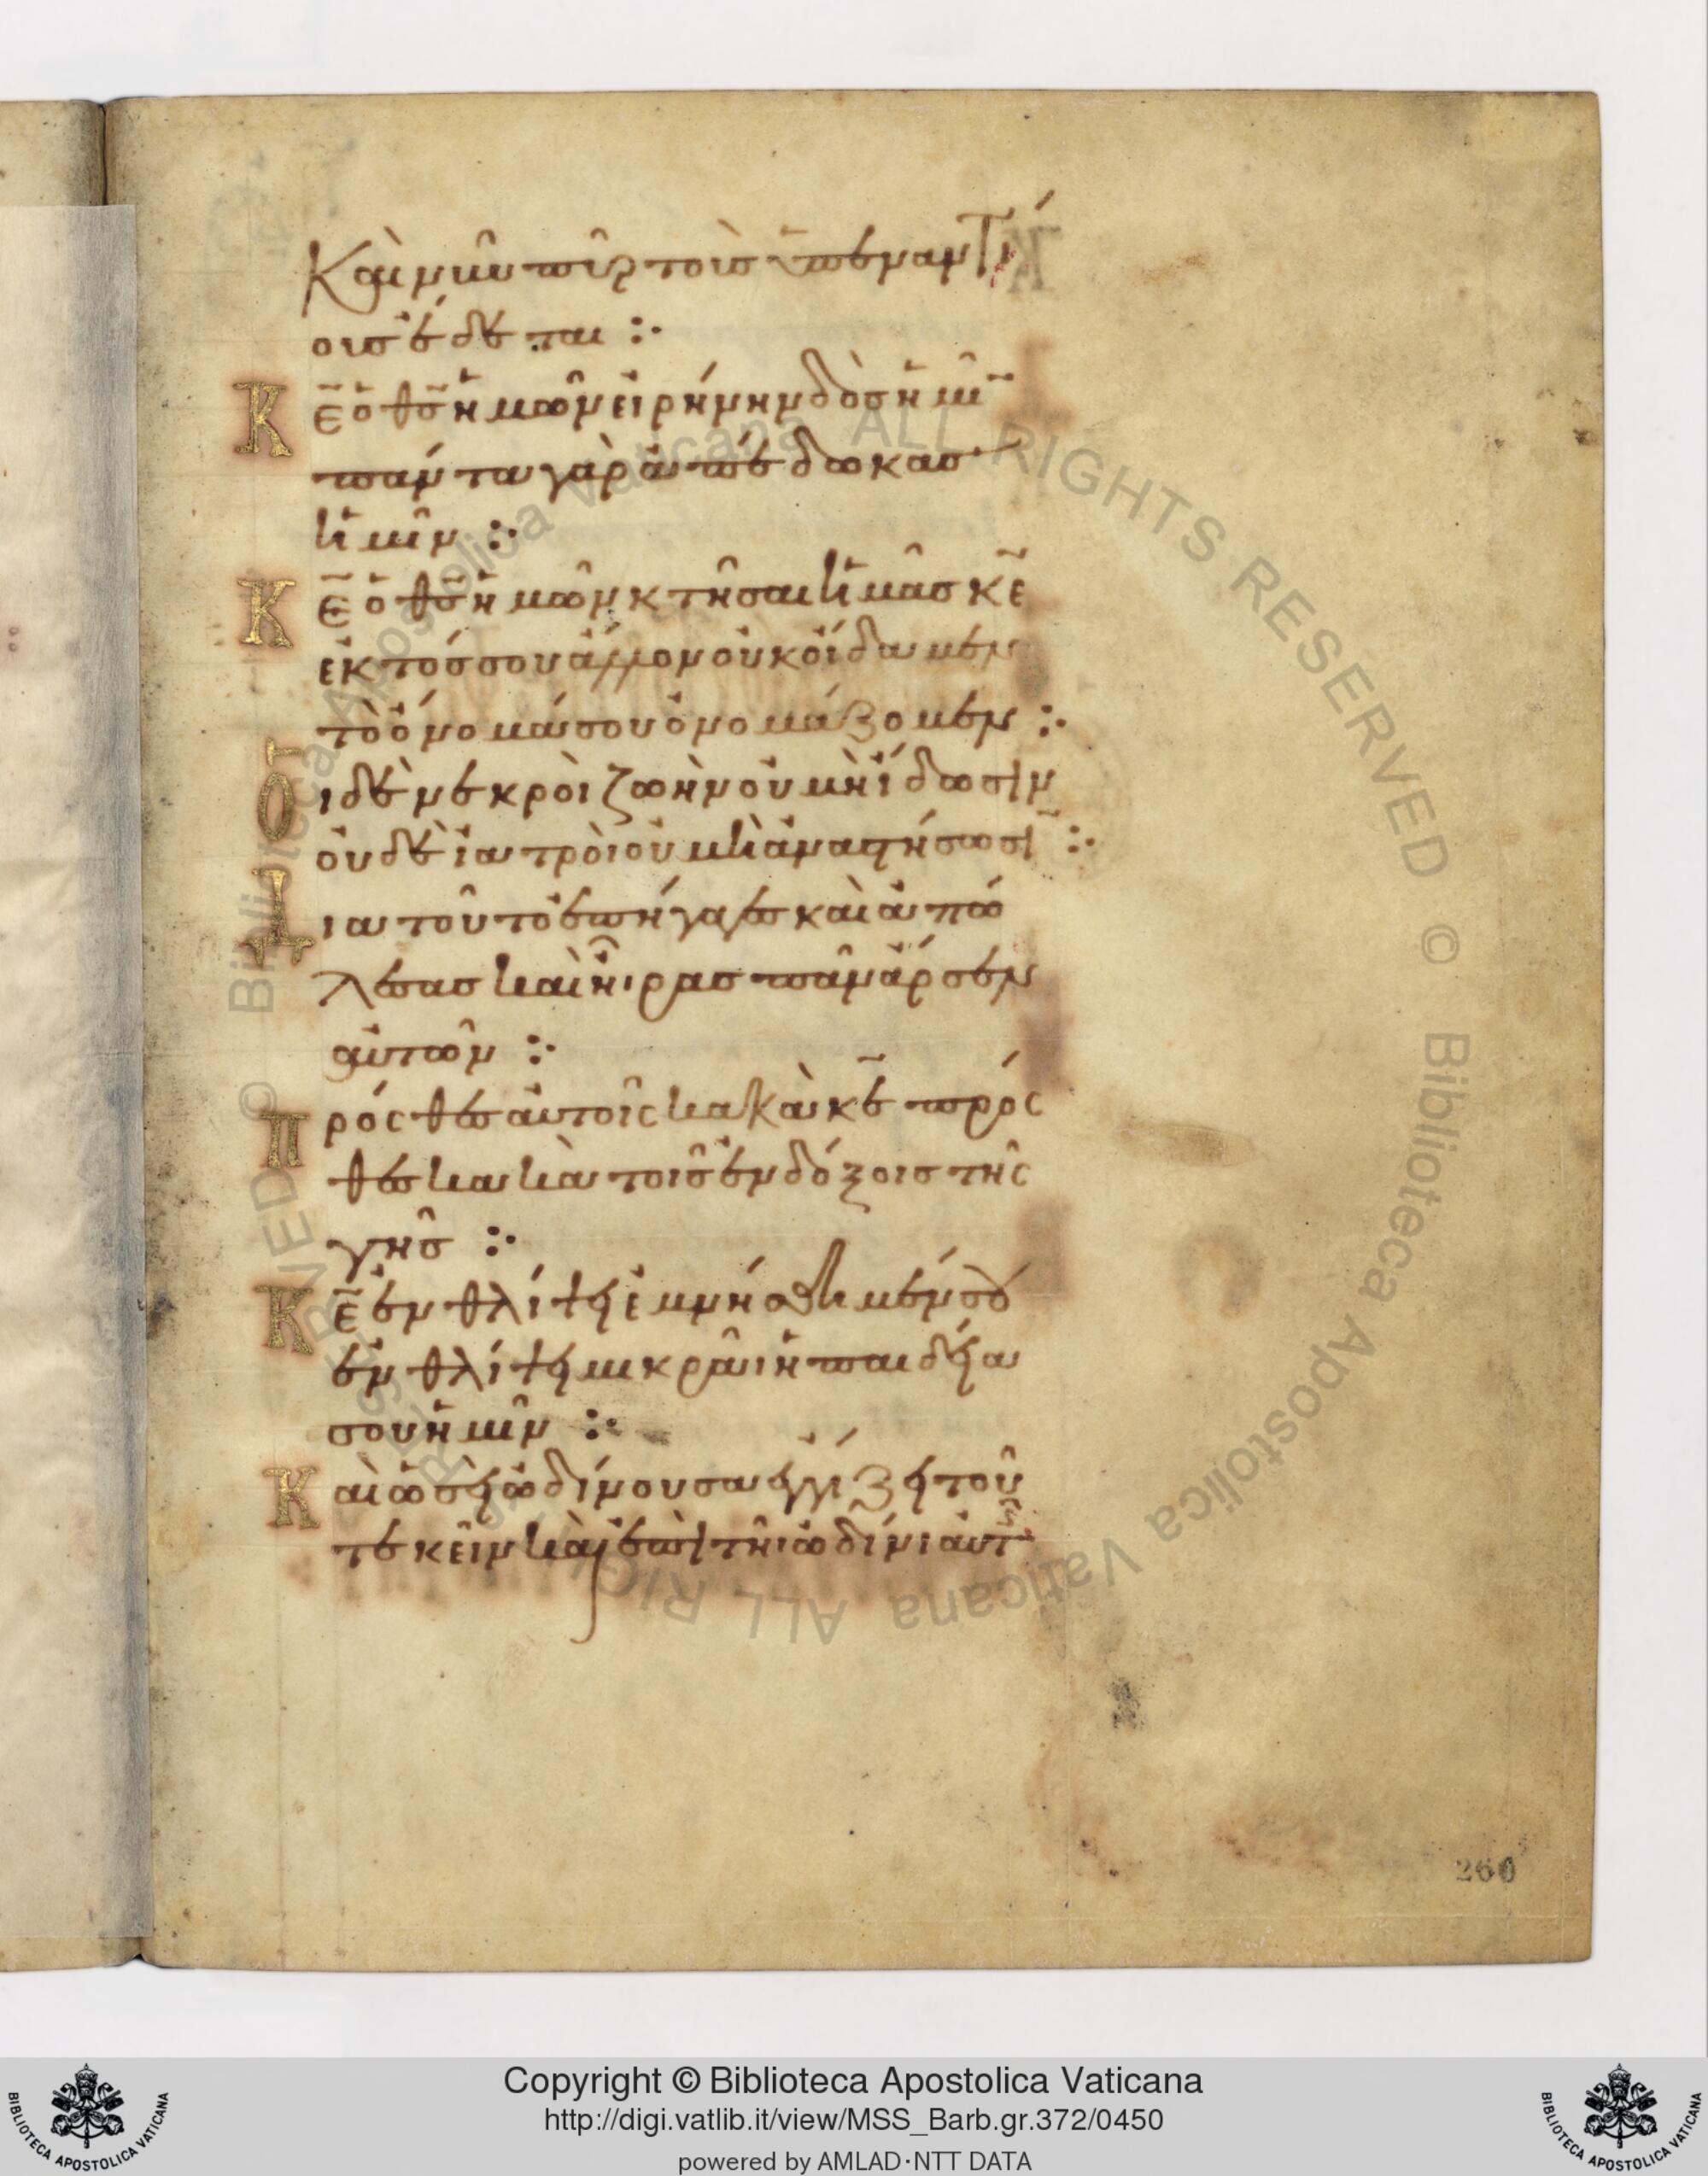 Καὶ νῦν πῦρ τοὺς ὑπεναντί
ους ἔδεται :·
Κ̅Ε̅ ὁ θ̅ς̅ ἡμῶν εἰρήνην δὸς ἡμῖ̅
πάντα γὰρ ἀπέδωκας
ἡμῖν :·
Κ̅Ε̅ ὁ θ̅ς̅ ἡμῶν κτῆσαι ἡμᾶς κ̅ε̅
ἐκτός σου ἄλλον οὐκ οἴδαμεν
τὸ ὄνομά σου ὀνομάζομεν :·
Οἱ δὲ νεκροὶ ζωὴν οὐ μὴ ἴδωσιν
οὐδὲ ἰατροὶ οὐ μὴ ἀναστήσωσι̅ :·
Διὰ τοῦτο ἐπήγαγες καὶ ἀπώ
λεσας καὶ ἦρας πᾶν ἄρσεν
αὐτῶν :·
Πρόσθες αὐτοῖς κακὰ κ̅ε̅ πρόσ
θες κακὰ τοῖς ἐνδόξοις τῆς
γῆς :·
Κ̅Ε̅ ἐν θλίψει ἐμνήσθημέν σου
ἐν θλίψει μικρᾷ ἡ παιδεία
σου ἡμῖν :·
Καὶ ὡς ἡ ὠδίνουσα ἐγγίζει τοῦ
τεκεῖν καὶ ἐπὶ τῆι ὠδῖνι αὐτῆς
260
Copyright © Biblioteca Apostolica Vaticana
http://digi.vatlib.it/view/MSS_Barb.gr.372/0450
powered by AMLAD·NTT DATA
BIBLIOTECA APOSTOLICA VATICANA
BIBLIOTECA APOSTOLICA VATICANA
© Biblioteca Apostolica Vaticana ALL RIGHTS RESERVED © Biblioteca Apostolica Vaticana ALL RIGHTS RESERVED